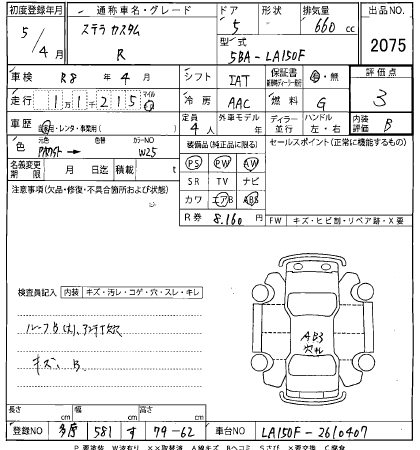 初度登録年月 通称車名・グレード ドア 形状 排気量 出品NO.
5/4月 ステラ カスタム R 5 660 cc 2075
型式 5BA-LA150F
車検 R8 年 4 月 シフト IAT 保証書 有・無 評価点
走行 1 1 2 1 5 マイル 冷房 AAC 燃料 G 3
車歴 自家用・レンタ・事業用( ) 定員 4人 外車モデル 年 ディーラー 並行 ハンドル 左・右 内装評価 B
色 元色 色替 カラーNO W25 装備品(純正品に限る) セールスポイント(正常に機能するもの)
名義変更期限 月 日迄 積載 t PS PW AW
注意事項(欠品・修復・不具合箇所および状態) SR TV ナビ
カワ エアB ABS
R券 8,160 FW キズ・ヒビ割・リペア跡・X要
検査員記入 内装 キズ・汚レ・コゲ・穴・スレ・キレ
ルーフB(大)、アンテナ欠
キズ、B
AB3
穴
長さ cm 幅 cm 高さ cm
登録NO 多摩 581 す 79-62 車台NO LA150F-2610407
P要塗装 W波有り XX取替済 A線キズ Bヘコミ Sさび X要交換 C腐食